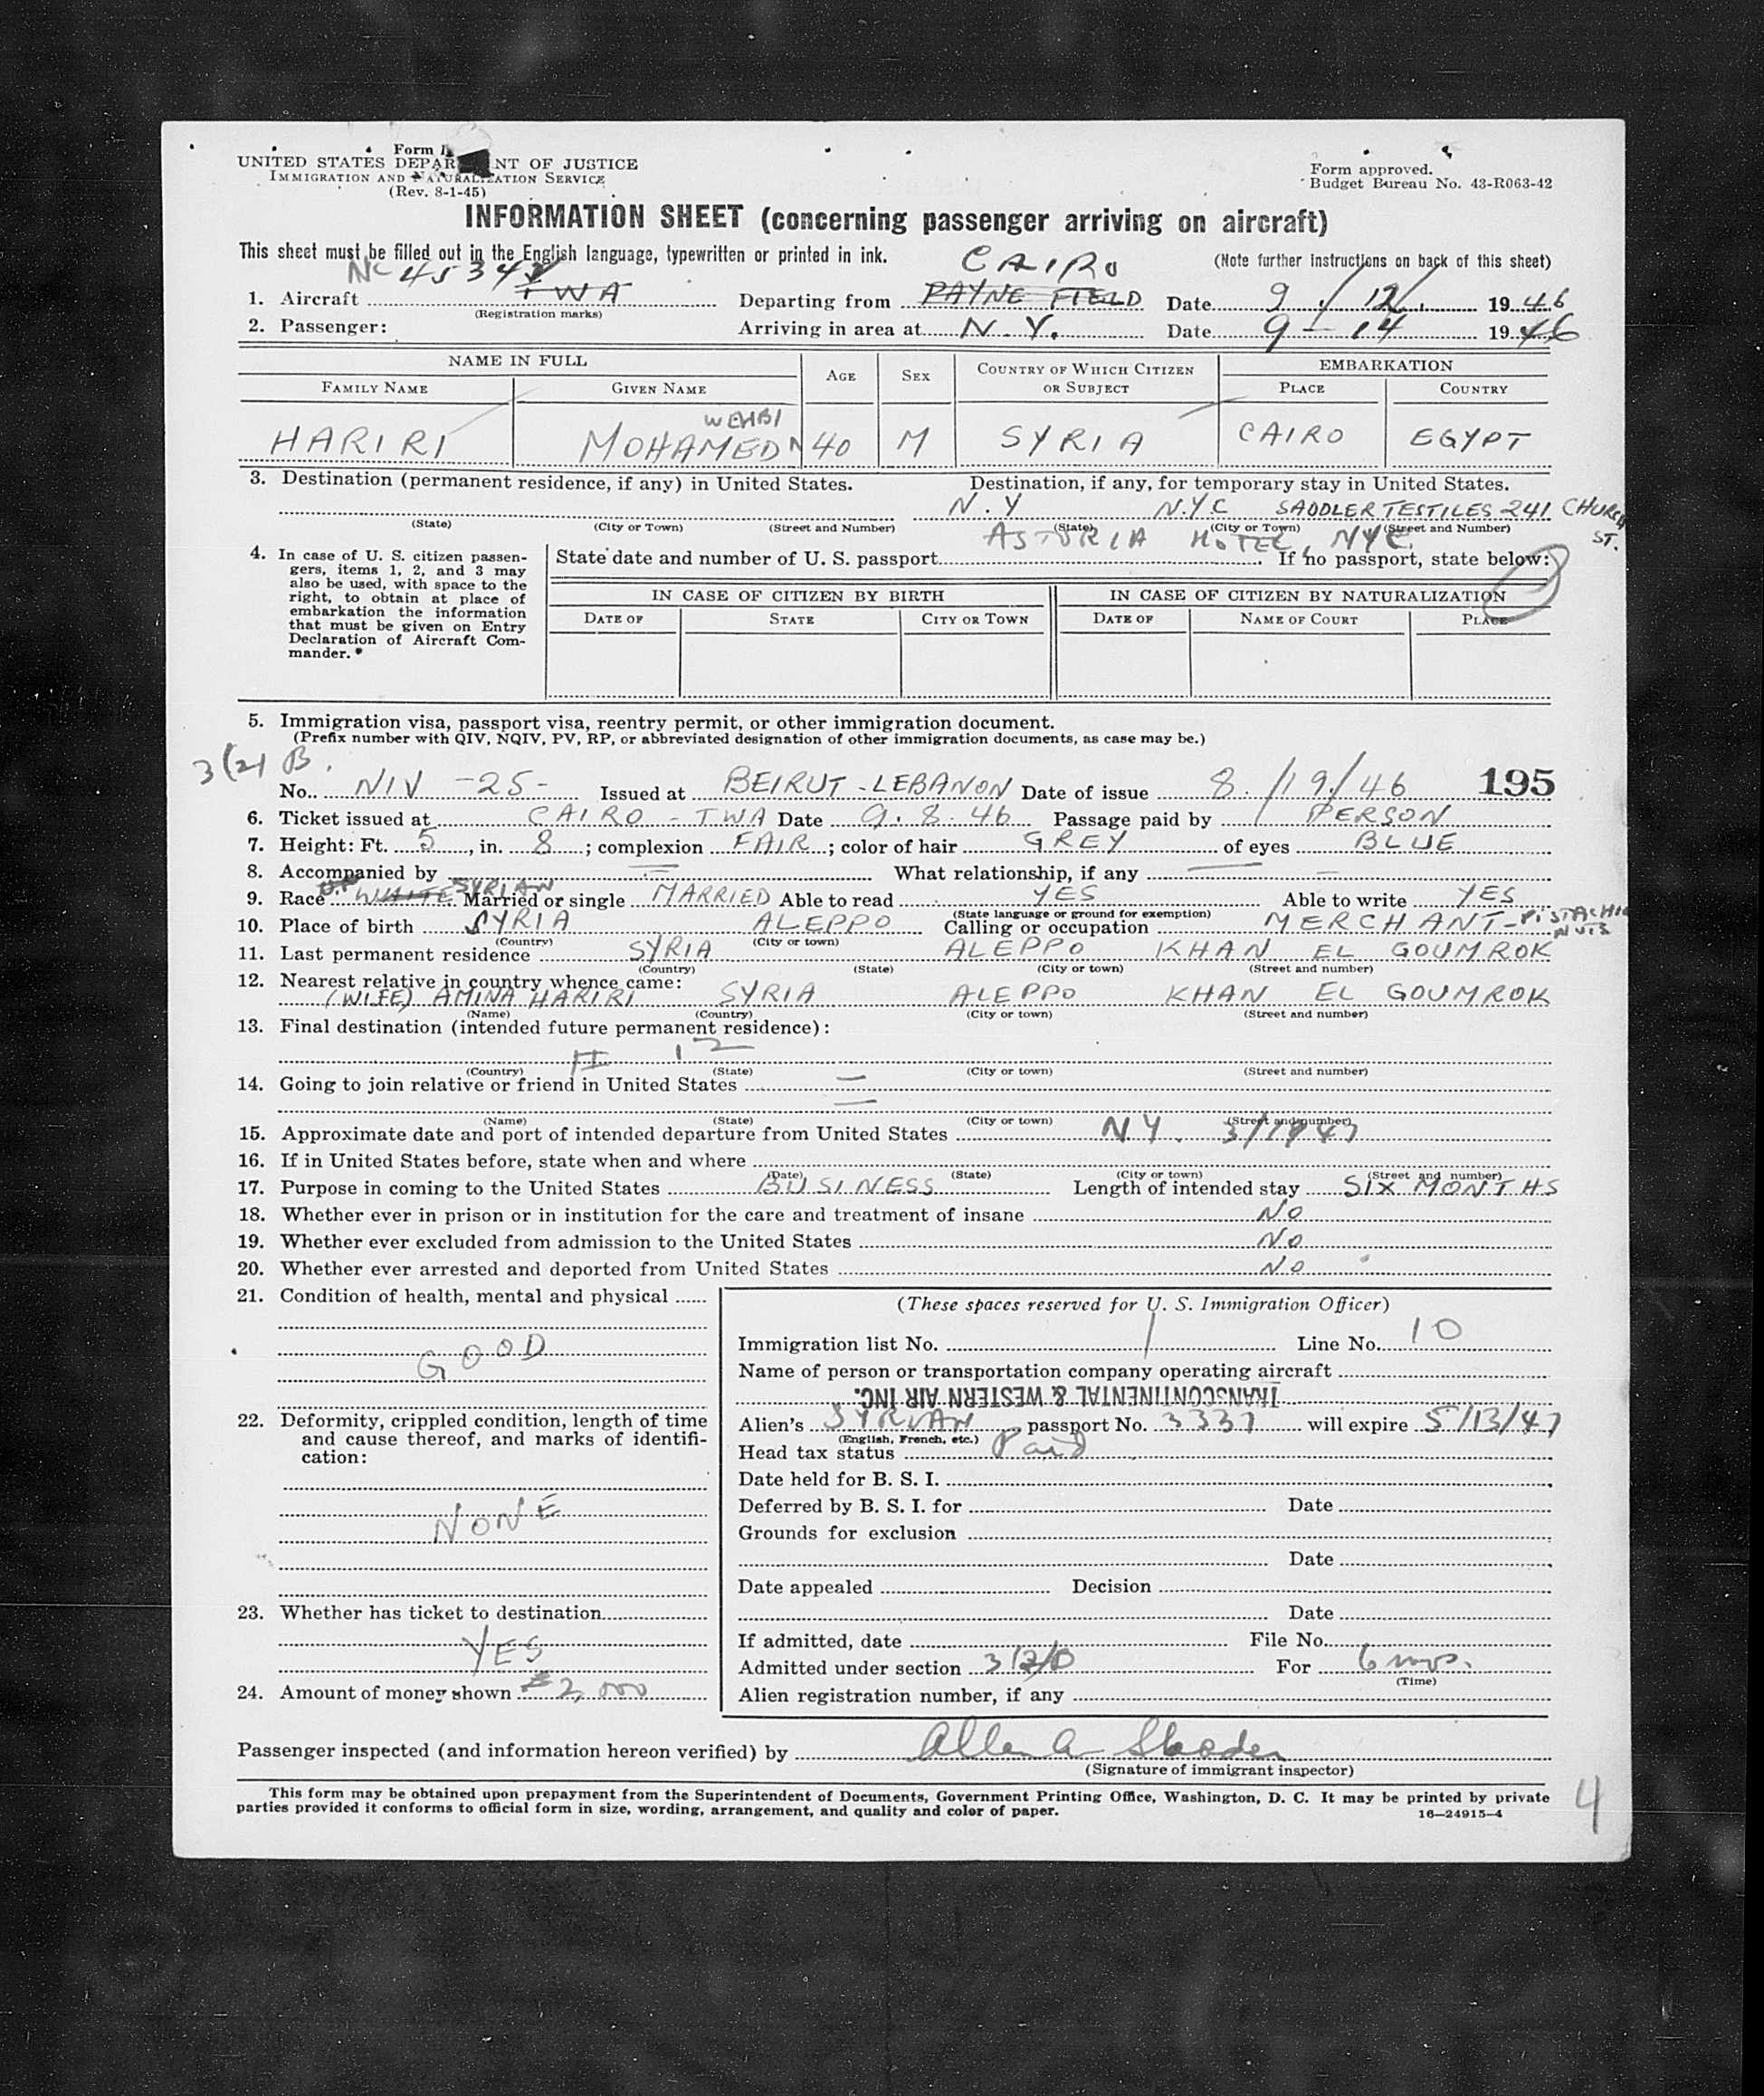 Form I
UNITED STATES DEPAR NT OF JUSTICE
IMMIGRATION AND NATURALIZATION SERVICE
(Rev. 8-1-45)
Form approved.
Budget Bureau No. 43-R063-42
INFORMATION SHEET (concerning passenger arriving on aircraft)
This sheet must be filled out in the English language, typewritten or printed in ink.
(Note further instructions on back of this sheet)
NC 4534 CAIRO
1. Aircraft TWA Departing from PAYNE FIELD Date 9/12/ 1946
(Registration marks)
2. Passenger: Arriving in area at N.Y. Date 9-14 1946
NAME IN FULL AGE SEX COUNTRY OF WHICH CITIZEN OR SUBJECT EMBARKATION
FAMILY NAME GIVEN NAME PLACE COUNTRY
WEHBI
HARIRI MOHAMED 40 M SYRIA CAIRO EGYPT
3. Destination (permanent residence, if any) in United States. Destination, if any, for temporary stay in United States.
N.Y N.Y.C SADDLER TESTILES 241 CHURCH ST.
(State) (City or Town) (Street and Number) (State) (City or Town) (Street and Number)
ASTORIA HOTEL, NYC.
4. In case of U. S. citizen passen-
gers, items 1, 2, and 3 may
also be used, with space to the
right, to obtain at place of
embarkation the information
that must be given on Entry
Declaration of Aircraft Com-
mander.*
State date and number of U. S. passport If no passport, state below:
IN CASE OF CITIZEN BY BIRTH IN CASE OF CITIZEN BY NATURALIZATION
DATE OF STATE CITY OR TOWN DATE OF NAME OF COURT PLACE
5. Immigration visa, passport visa, reentry permit, or other immigration document.
(Prefix number with QIV, NQIV, PV, RP, or abbreviated designation of other immigration documents, as case may be.)
3(2) B.
No. NIV -25- Issued at BEIRUT-LEBANON Date of issue 8/19/46 195
6. Ticket issued at CAIRO - TWA Date 9.8.46 Passage paid by PERSON
7. Height: Ft. 5, in. 8; complexion FAIR; color of hair GREY of eyes BLUE
8. Accompanied by — What relationship, if any —
9. Race WHITE SYRIAN Married or single MARRIED Able to read YES Able to write YES
(State language or ground for exemption)
10. Place of birth SYRIA ALEPPO Calling or occupation MERCHANT-PISTACHIO NUTS
(Country) (City or town)
11. Last permanent residence SYRIA ALEPPO KHAN EL GOUMROK
(Country) (State) (City or town) (Street and number)
12. Nearest relative in country whence came:
(WIFE) AMINA HARIRI SYRIA ALEPPO KHAN EL GOUMROK
(Name) (Country) (City or town) (Street and number)
13. Final destination (intended future permanent residence):
12
(Country) (State) (City or town) (Street and number)
14. Going to join relative or friend in United States —
(Name) (State) (City or town) (Street and number)
15. Approximate date and port of intended departure from United States N.Y. 3/1947
16. If in United States before, state when and where
(Date) (State) (City or town) (Street and number)
17. Purpose in coming to the United States BUSINESS Length of intended stay SIX MONTHS
18. Whether ever in prison or in institution for the care and treatment of insane NO
19. Whether ever excluded from admission to the United States NO
20. Whether ever arrested and deported from United States NO
21. Condition of health, mental and physical
GOOD
22. Deformity, crippled condition, length of time
and cause thereof, and marks of identifi-
cation:
NONE
23. Whether has ticket to destination
YES
24. Amount of money shown $2,000
(These spaces reserved for U. S. Immigration Officer)
Immigration list No. 1 Line No. 10
Name of person or transportation company operating aircraft
TRANSCONTINENTAL & WESTERN AIR INC.
Alien's SYRIAN passport No. 3337 will expire 5/13/47
(English, French, etc.)
Head tax status Paid
Date held for B. S. I.
Deferred by B. S. I. for Date
Grounds for exclusion
Date
Date appealed Decision
Date
If admitted, date File No.
Admitted under section 3(2)B For 6 mos.
(Time)
Alien registration number, if any
Passenger inspected (and information hereon verified) by Allen A
(Signature of immigrant inspector)
This form may be obtained upon prepayment from the Superintendent of Documents, Government Printing Office, Washington, D. C. It may be printed by private
parties provided it conforms to official form in size, wording, arrangement, and quality and color of paper. 16—24915-4
4